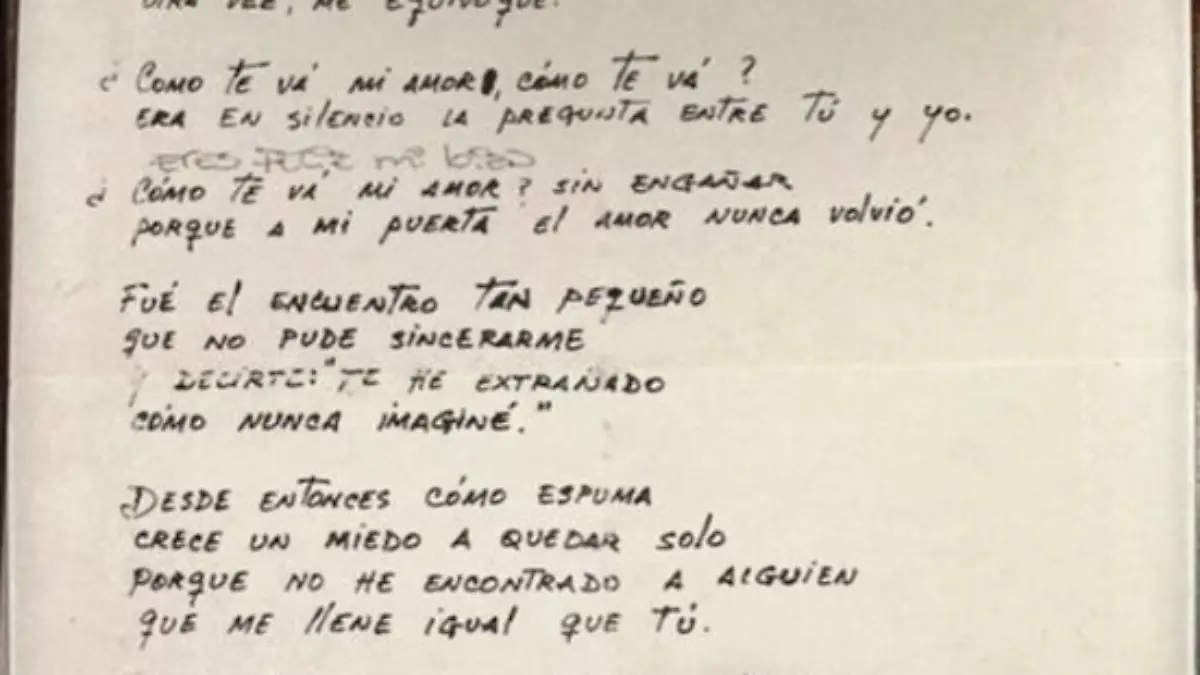 OTRA VEZ, ME EQUIVOQUÉ.
¿COMO TE VÁ MI AMOR, CÓMO TE VÁ?
ERA EN SILENCIO LA PREGUNTA ENTRE TÚ Y YO.
ERES FELIZ mi bien
¿CÓMO TE VÁ MI AMOR? SIN ENGAÑAR
PORQUE A MI PUERTA El AMOR NUNCA VOLVIÓ.
FUÉ El ENCUENTRO TAN PEQUEÑO
QUE NO PUDE SINCERARME
Y DECIRTE: "TE HE EXTRAÑADO
CÓMO NUNCA IMAGINÉ."
DESDE ENTONCES CÓMO ESPUMA
CRECE UN MIEDO A QUEDAR SOLO
PORQUE NO HE ENCONTRADO A ALGUIEN
QUE ME LLENE IGUAL QUE TÚ.